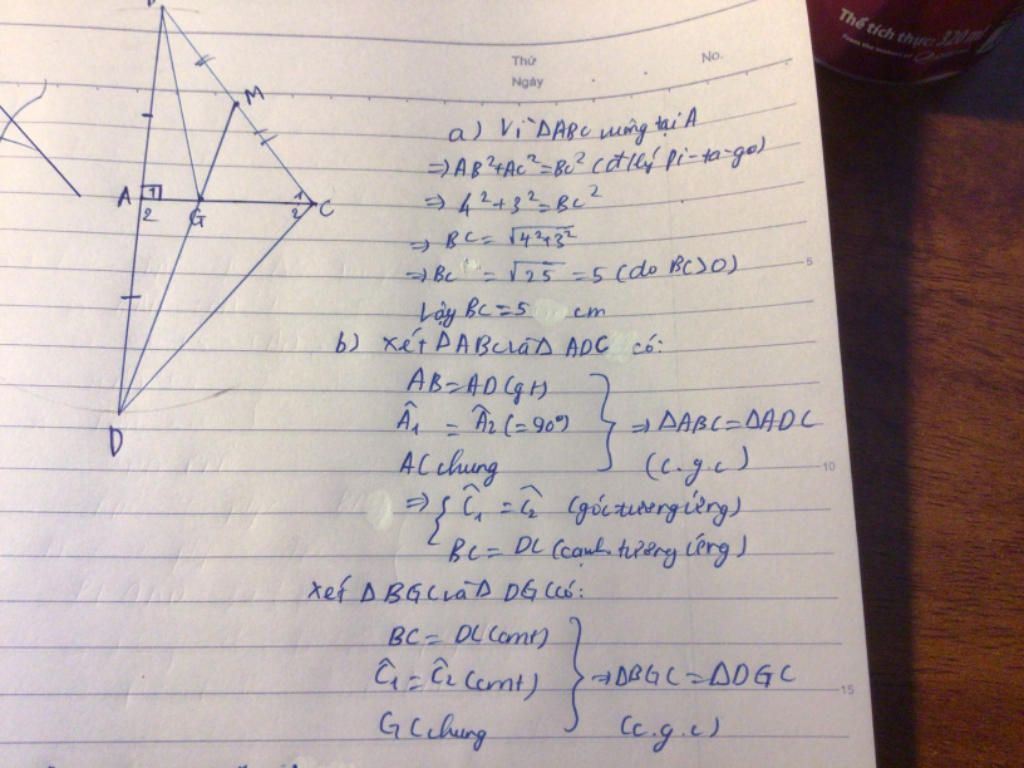 Thể tích thực: 320 ml
Thứ
Ngày
No.
M
A 1
2
G
1
2 C
D
a) Vì ΔABC vuông tại A
⇒ AB²+AC²=BC² (đ/lý Pi-ta-go)
⇒ 4²+3²=BC²
⇒ BC = √4²+3²
⇒ BC = √25 = 5 (do BC>0)
Vậy BC = 5 cm
b) Xét ΔABC và Δ ADC có:
AB = AD (gt)
Â₁ = Â₂ (= 90°)
AC chung
⇒ ΔABC = ΔADC
(c.g.c)
⇒ { Ĉ₁ = Ĉ₂ (góc tương ứng)
BC = DC (cạnh tương ứng)
Xét Δ BGC và Δ DGC có:
BC = DC (cmt)
Ĉ₁ = Ĉ₂ (cmt)
GC chung
⇒ ΔBGC = ΔDGC
(c.g.c)
5
10
15